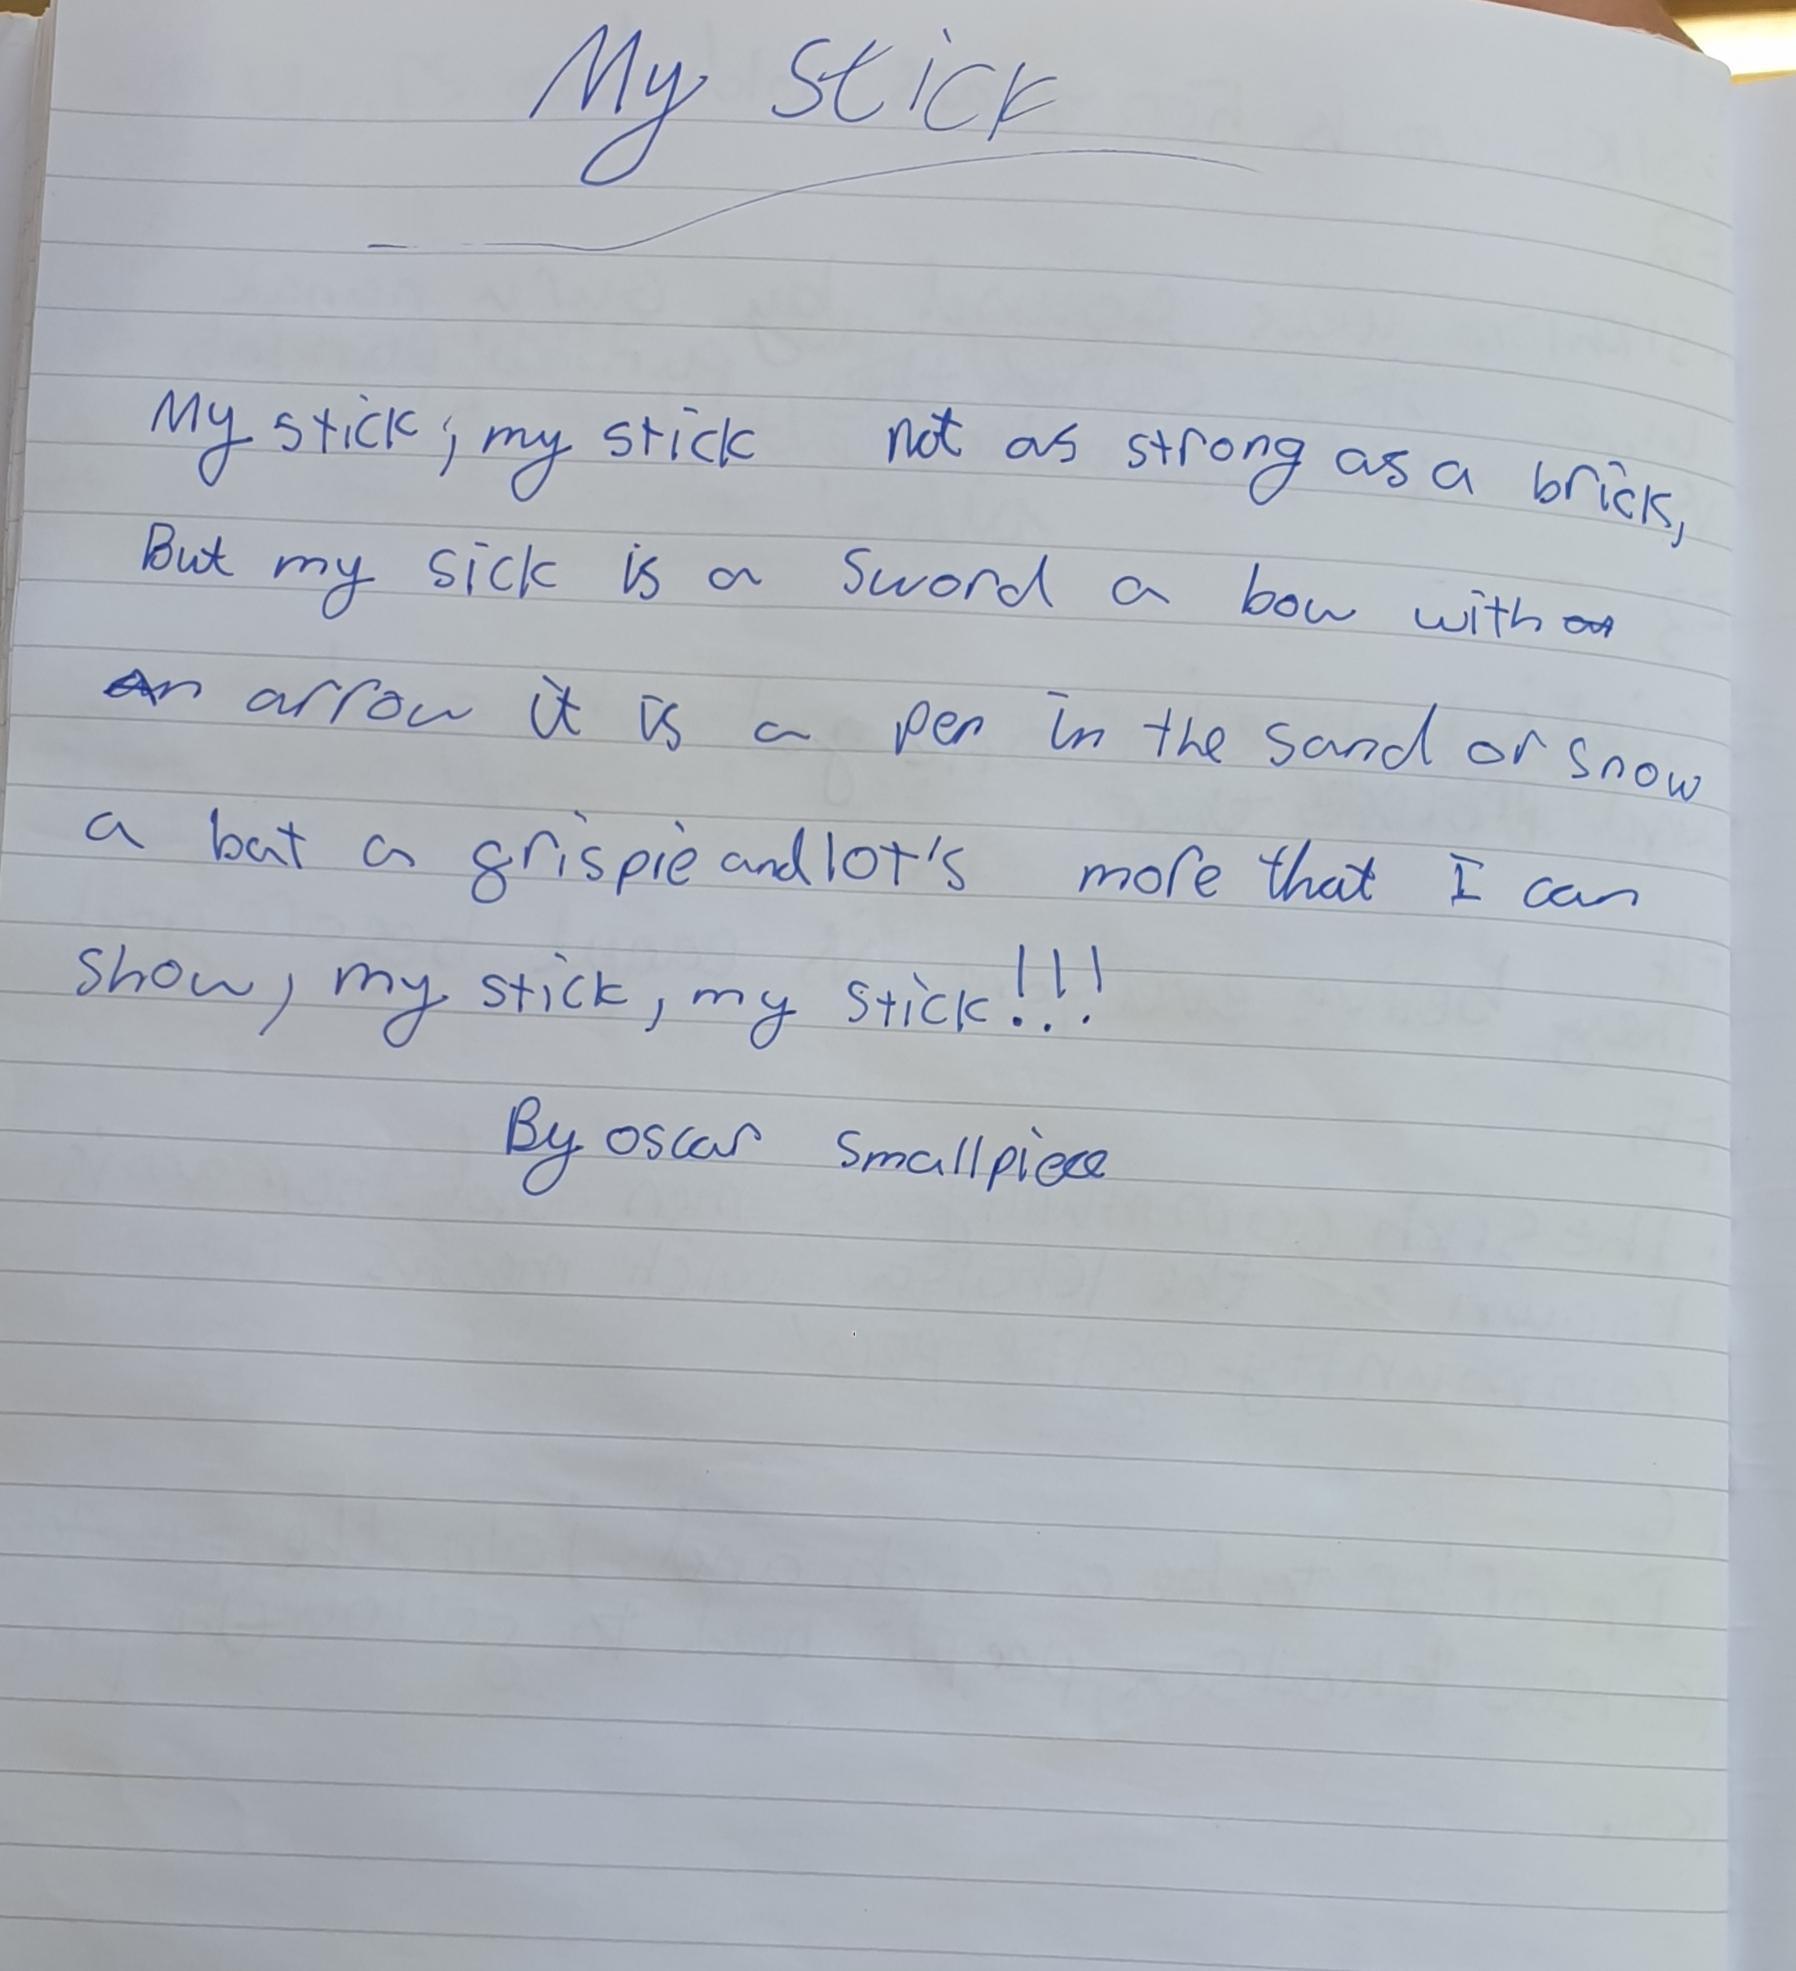 My stick
My stick, my stick not as strong as a brick,
But my sick is a sword a bow with
an arrow it is a pen in the sand or snow
a bat a grispie and lot's more that I can
show, my stick, my stick!!!
By oscar smallpiece